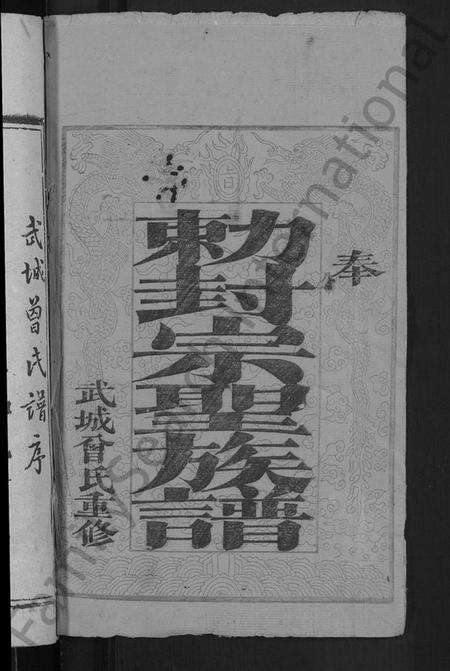 奉
勅封宗聖族譜
武城曾氏重修
武城曾氏譜序
FamilySearch International